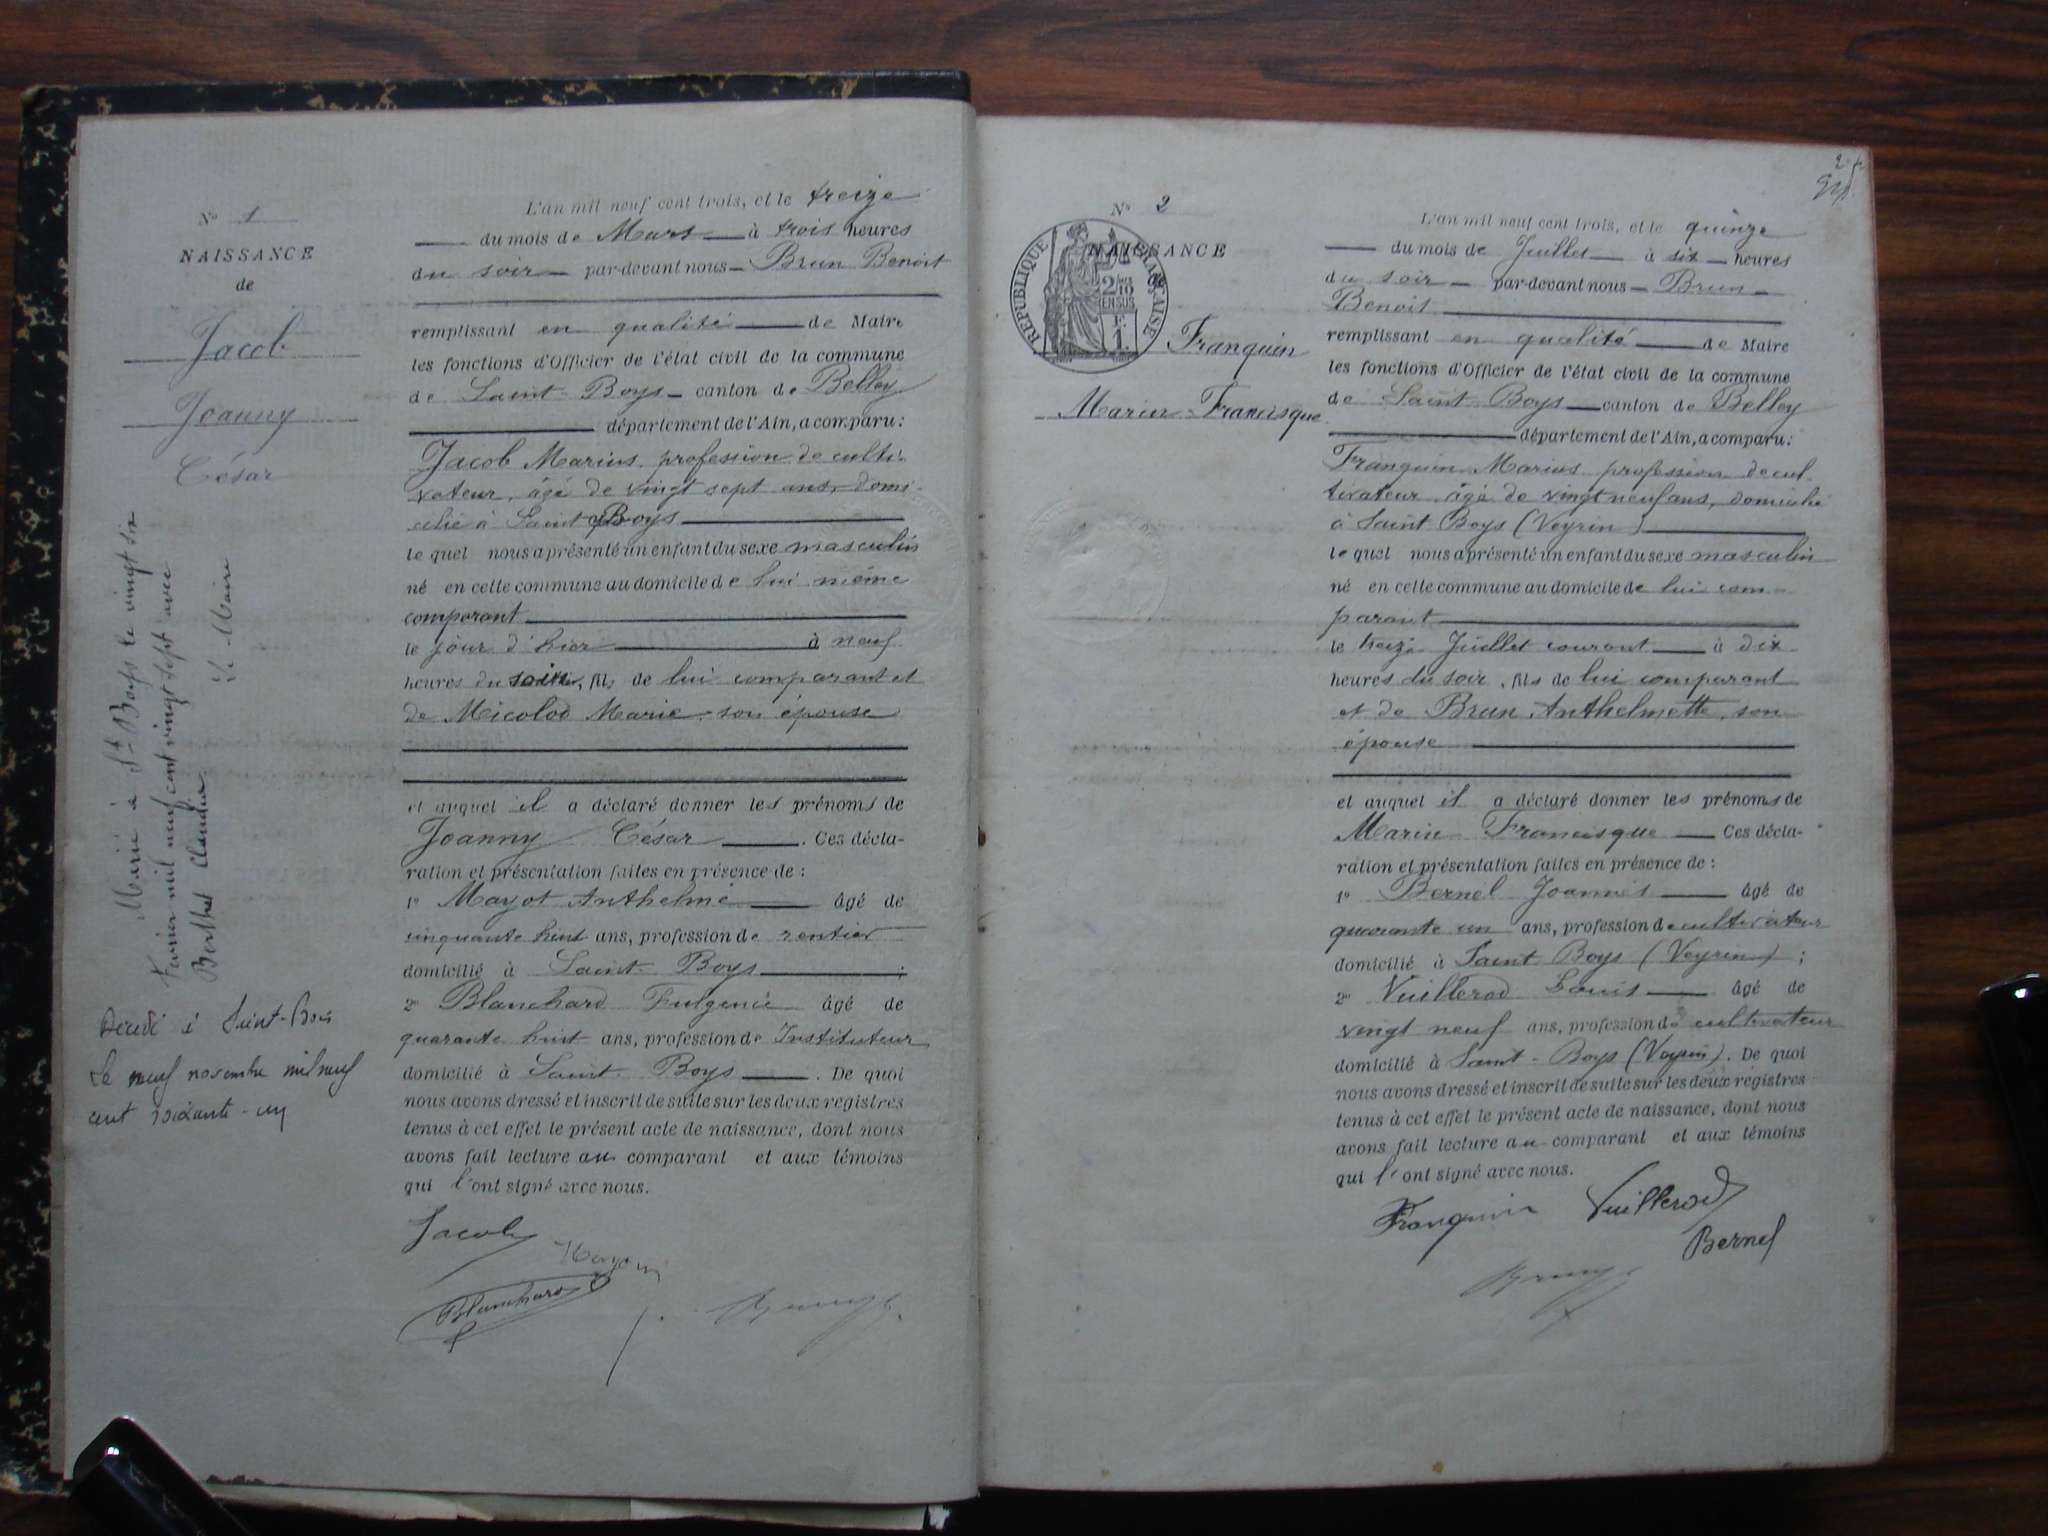 N° 1
NAISSANCE
de
Jacob
Joanny
César
Marié à St Boys le vingt six
Février mil neuf cent vingt sept avec
Berthet Claudia
Le Maire
Décédé à Saint-Bois
le neuf novembre mil neuf
cent soixante-un
L'an mil neuf cent trois, et le treize
du mois de Mars à trois heures
du soir par-devant nous Brun Benoit
remplissant en qualité de Maire
les fonctions d'Officier de l'état civil de la commune
de Saint-Boys canton de Belley
département de l'Ain, a comparu:
Jacob Marius, profession de culti-
vateur, âgé de vingt sept ans, domi-
cilié à Saint Boys
le quel nous a présenté un enfant du sexe masculin
né en cette commune au domicile de lui même
comparant
le jour d'hier à neuf
heures du soir, fils de lui comparant et
de Micolod Marie son épouse
et auquel il a déclaré donner les prénoms de
Joanny César. Ces décla-
ration et présentation faites en présence de:
1° Mayot Anthelme âgé de
cinquante huit ans, profession de rentier
domicilié à Saint-Boys;
2° Blanchard Fulgence âgé de
quarante huit ans, profession de Instituteur
domicilié à Saint Boys. De quoi
nous avons dressé et inscrit de suite sur les deux registres
tenus à cet effet le présent acte de naissance, dont nous
avons fait lecture au comparant et aux témoins
qui l'ont signé avec nous.
Jacob
Blanchard
Brun
N° 2
NAISSANCE
de
RÉPUBLIQUE FRANÇAISE
2/10 EN SUS
1 F.
Franquin
Marin-Francisque
2
L'an mil neuf cent trois, et le quinze
du mois de Juillet à six heures
du soir par-devant nous Brun
Benoit
remplissant en qualité de Maire
les fonctions d'Officier de l'état civil de la commune
de Saint-Boys canton de Belley
département de l'Ain, a comparu:
Franquin Marius profession de cul-
tivateur âgé de vingt neuf ans, domicilié
à Saint Boys (Veyrin)
le quel nous a présenté un enfant du sexe masculin
né en cette commune au domicile de lui com-
parant
le treize Juillet courant à dix
heures du soir, fils de lui comparant
et de Brun Anthelmette, son
épouse
et auquel il a déclaré donner les prénoms de
Marin-Francisque Ces décla-
ration et présentation faites en présence de:
1° Bernel Joannès âgé de
quarante un ans, profession de cultivateur
domicilié à Saint Boys (Veyrin);
2° Vuillerod Louis âgé de
vingt neuf ans, profession de cultivateur
domicilié à Saint-Boys (Veyrin). De quoi
nous avons dressé et inscrit de suite sur les deux registres
tenus à cet effet le présent acte de naissance, dont nous
avons fait lecture au comparant et aux témoins
qui l'ont signé avec nous.
Franquin Vuillerod
Bernel
Brun